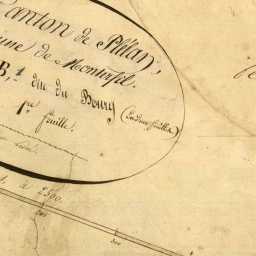 Canton de Plélan,
une de Monterfil.
B, 1 dite du Bourg
1re feuille.
(en deux feuilles)
à 2500.